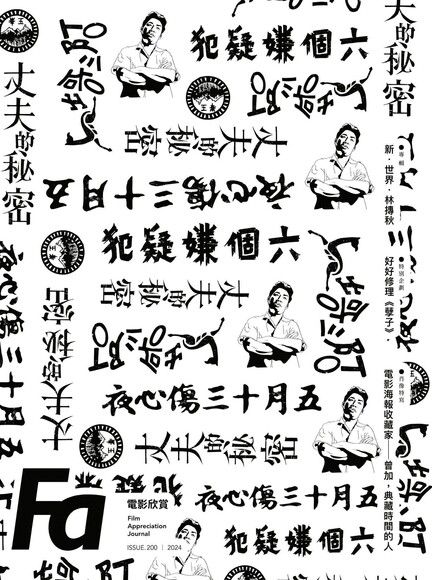 六個嫌疑犯
丈夫的秘密
丈夫的秘密
丈夫的秘密
五月十三傷心夜
六個嫌疑犯
丈夫的秘密
丈夫的秘密
五月十三傷心夜
丈夫的秘密
五月十三傷心夜
五月十三傷心夜
六個嫌疑犯
專輯
新・世界・林摶秋
特別企劃
好好修理《孽子》・
肖像特寫
電影海報收藏家——曾加，典藏時間的人
Fa
電影欣賞
Film
Appreciation
Journal
ISSUE.200 | 2024